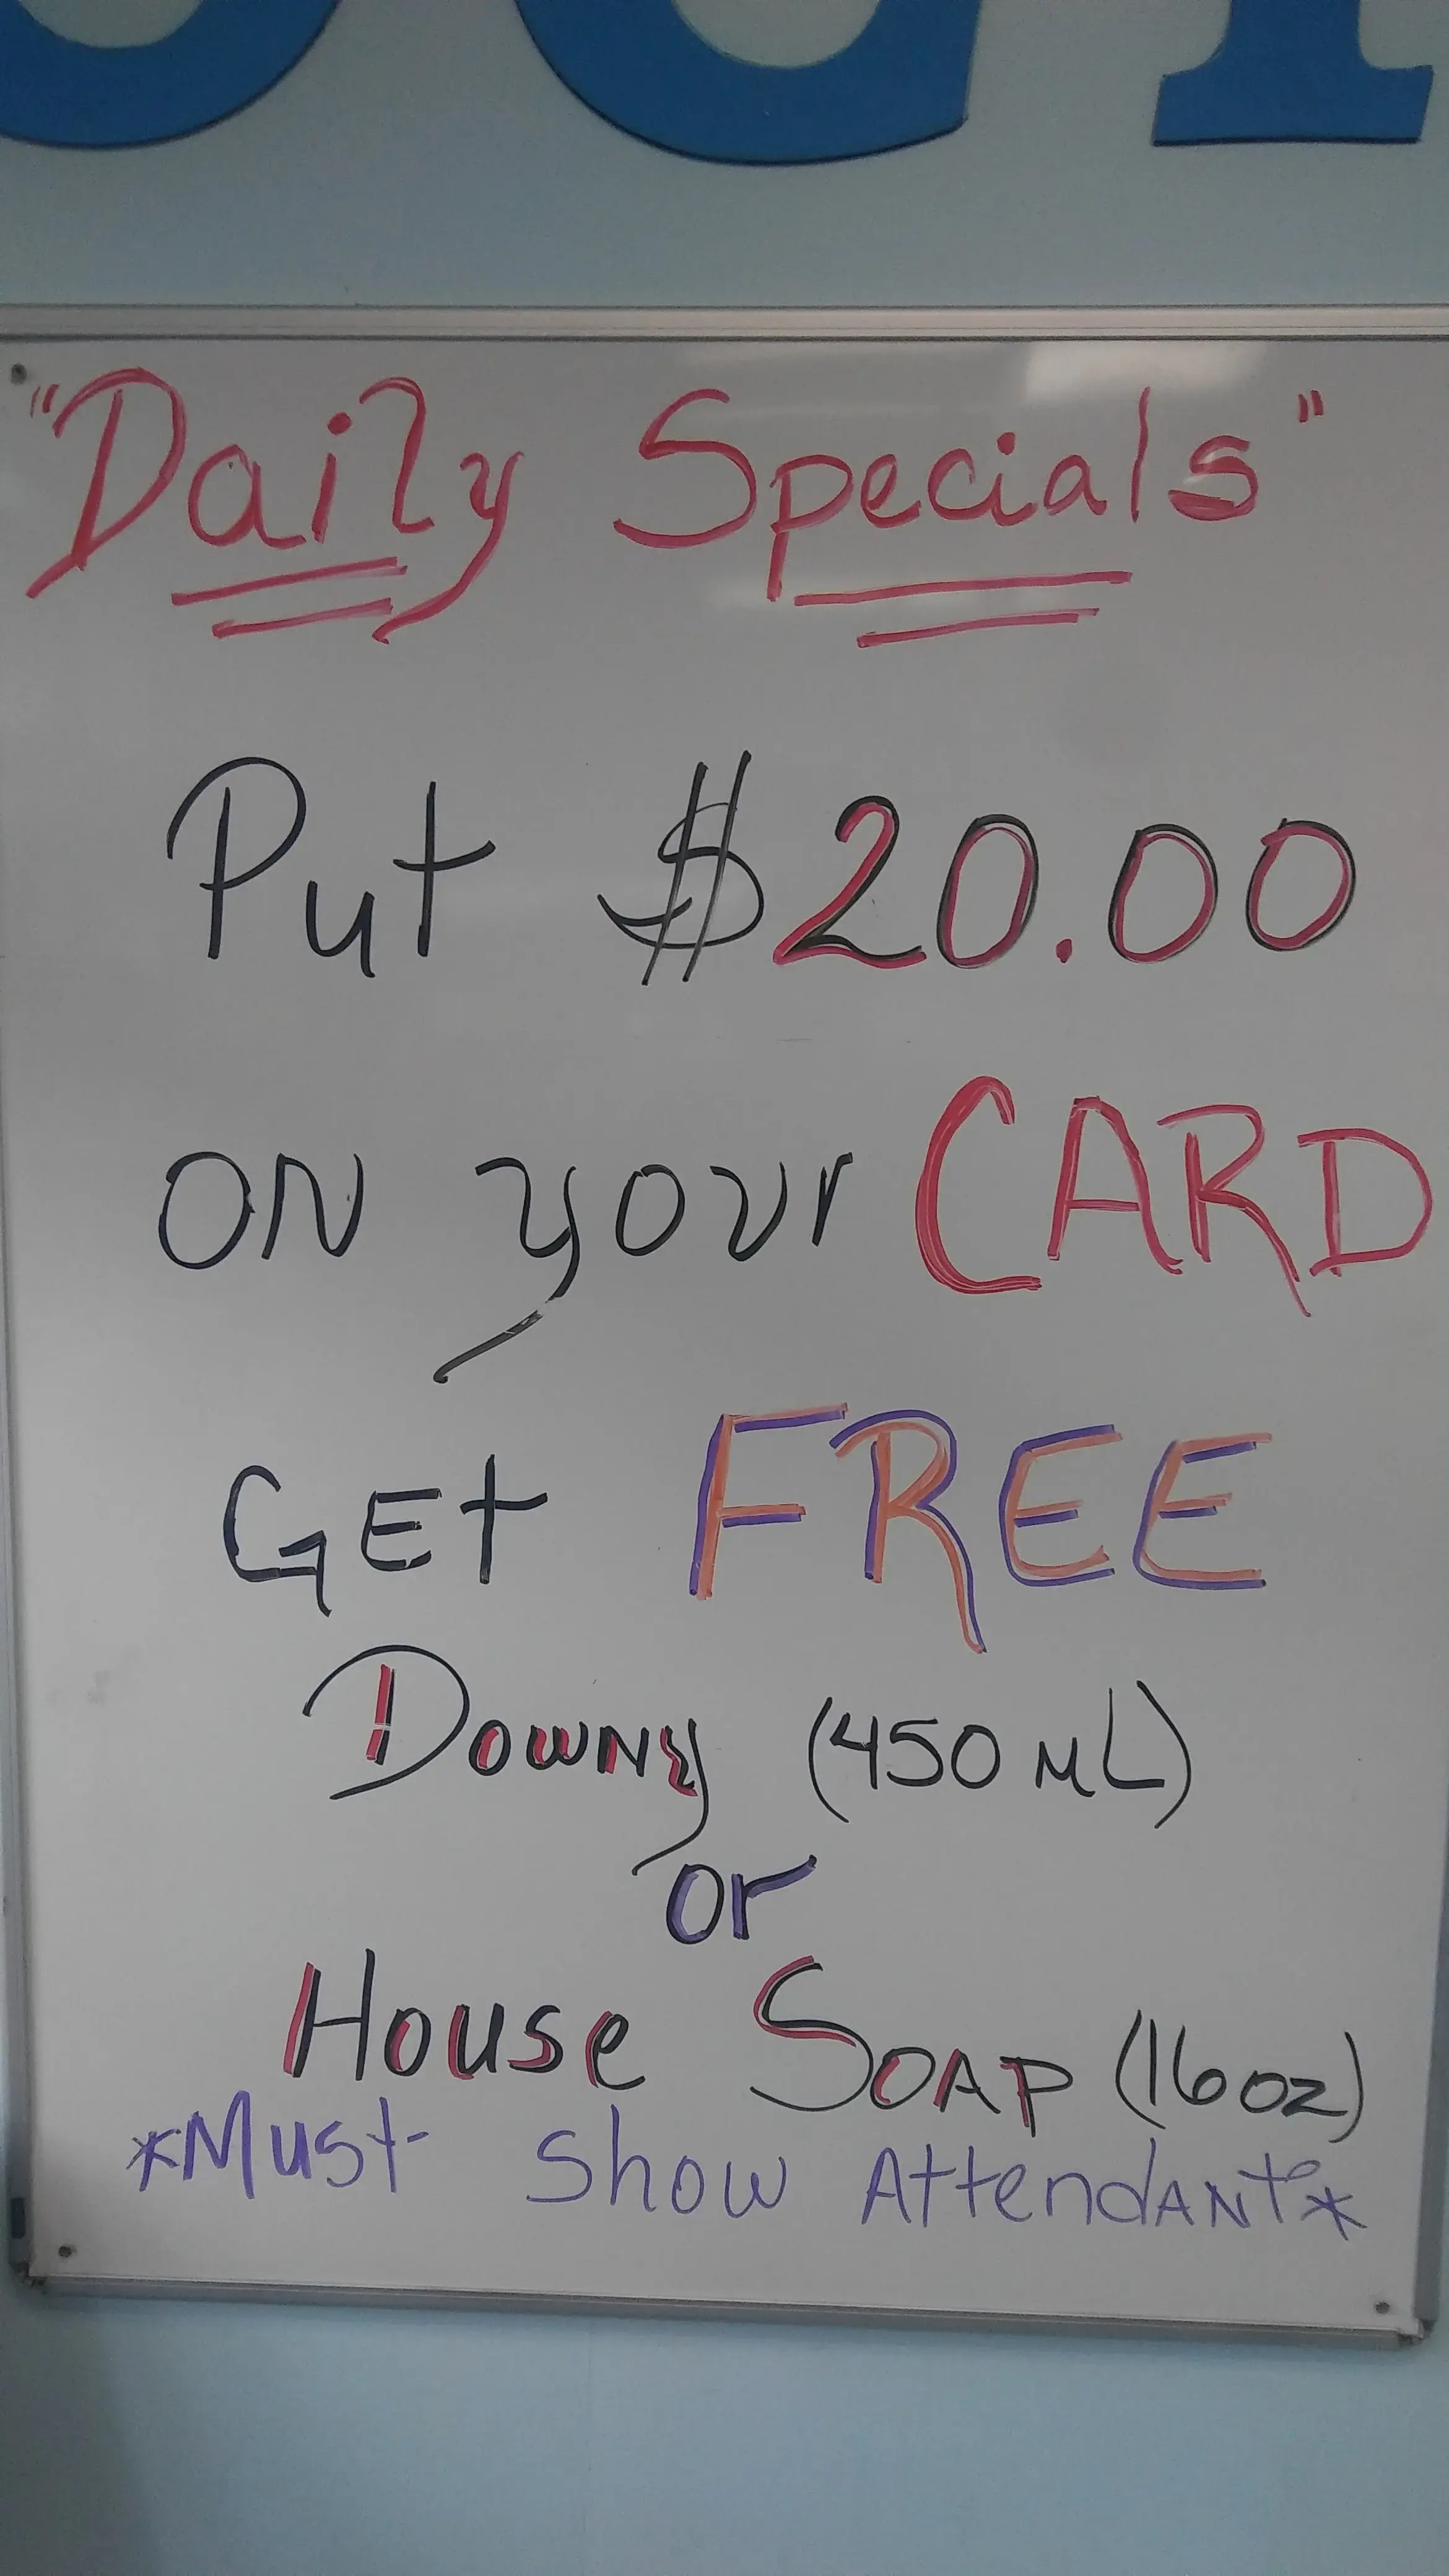 "Daily Specials"
Put $20.00
ON your CARD
GEt FREE
DOWNy (450 mL)
or
House SOAP (16 oz)
*Must Show AttendANT*